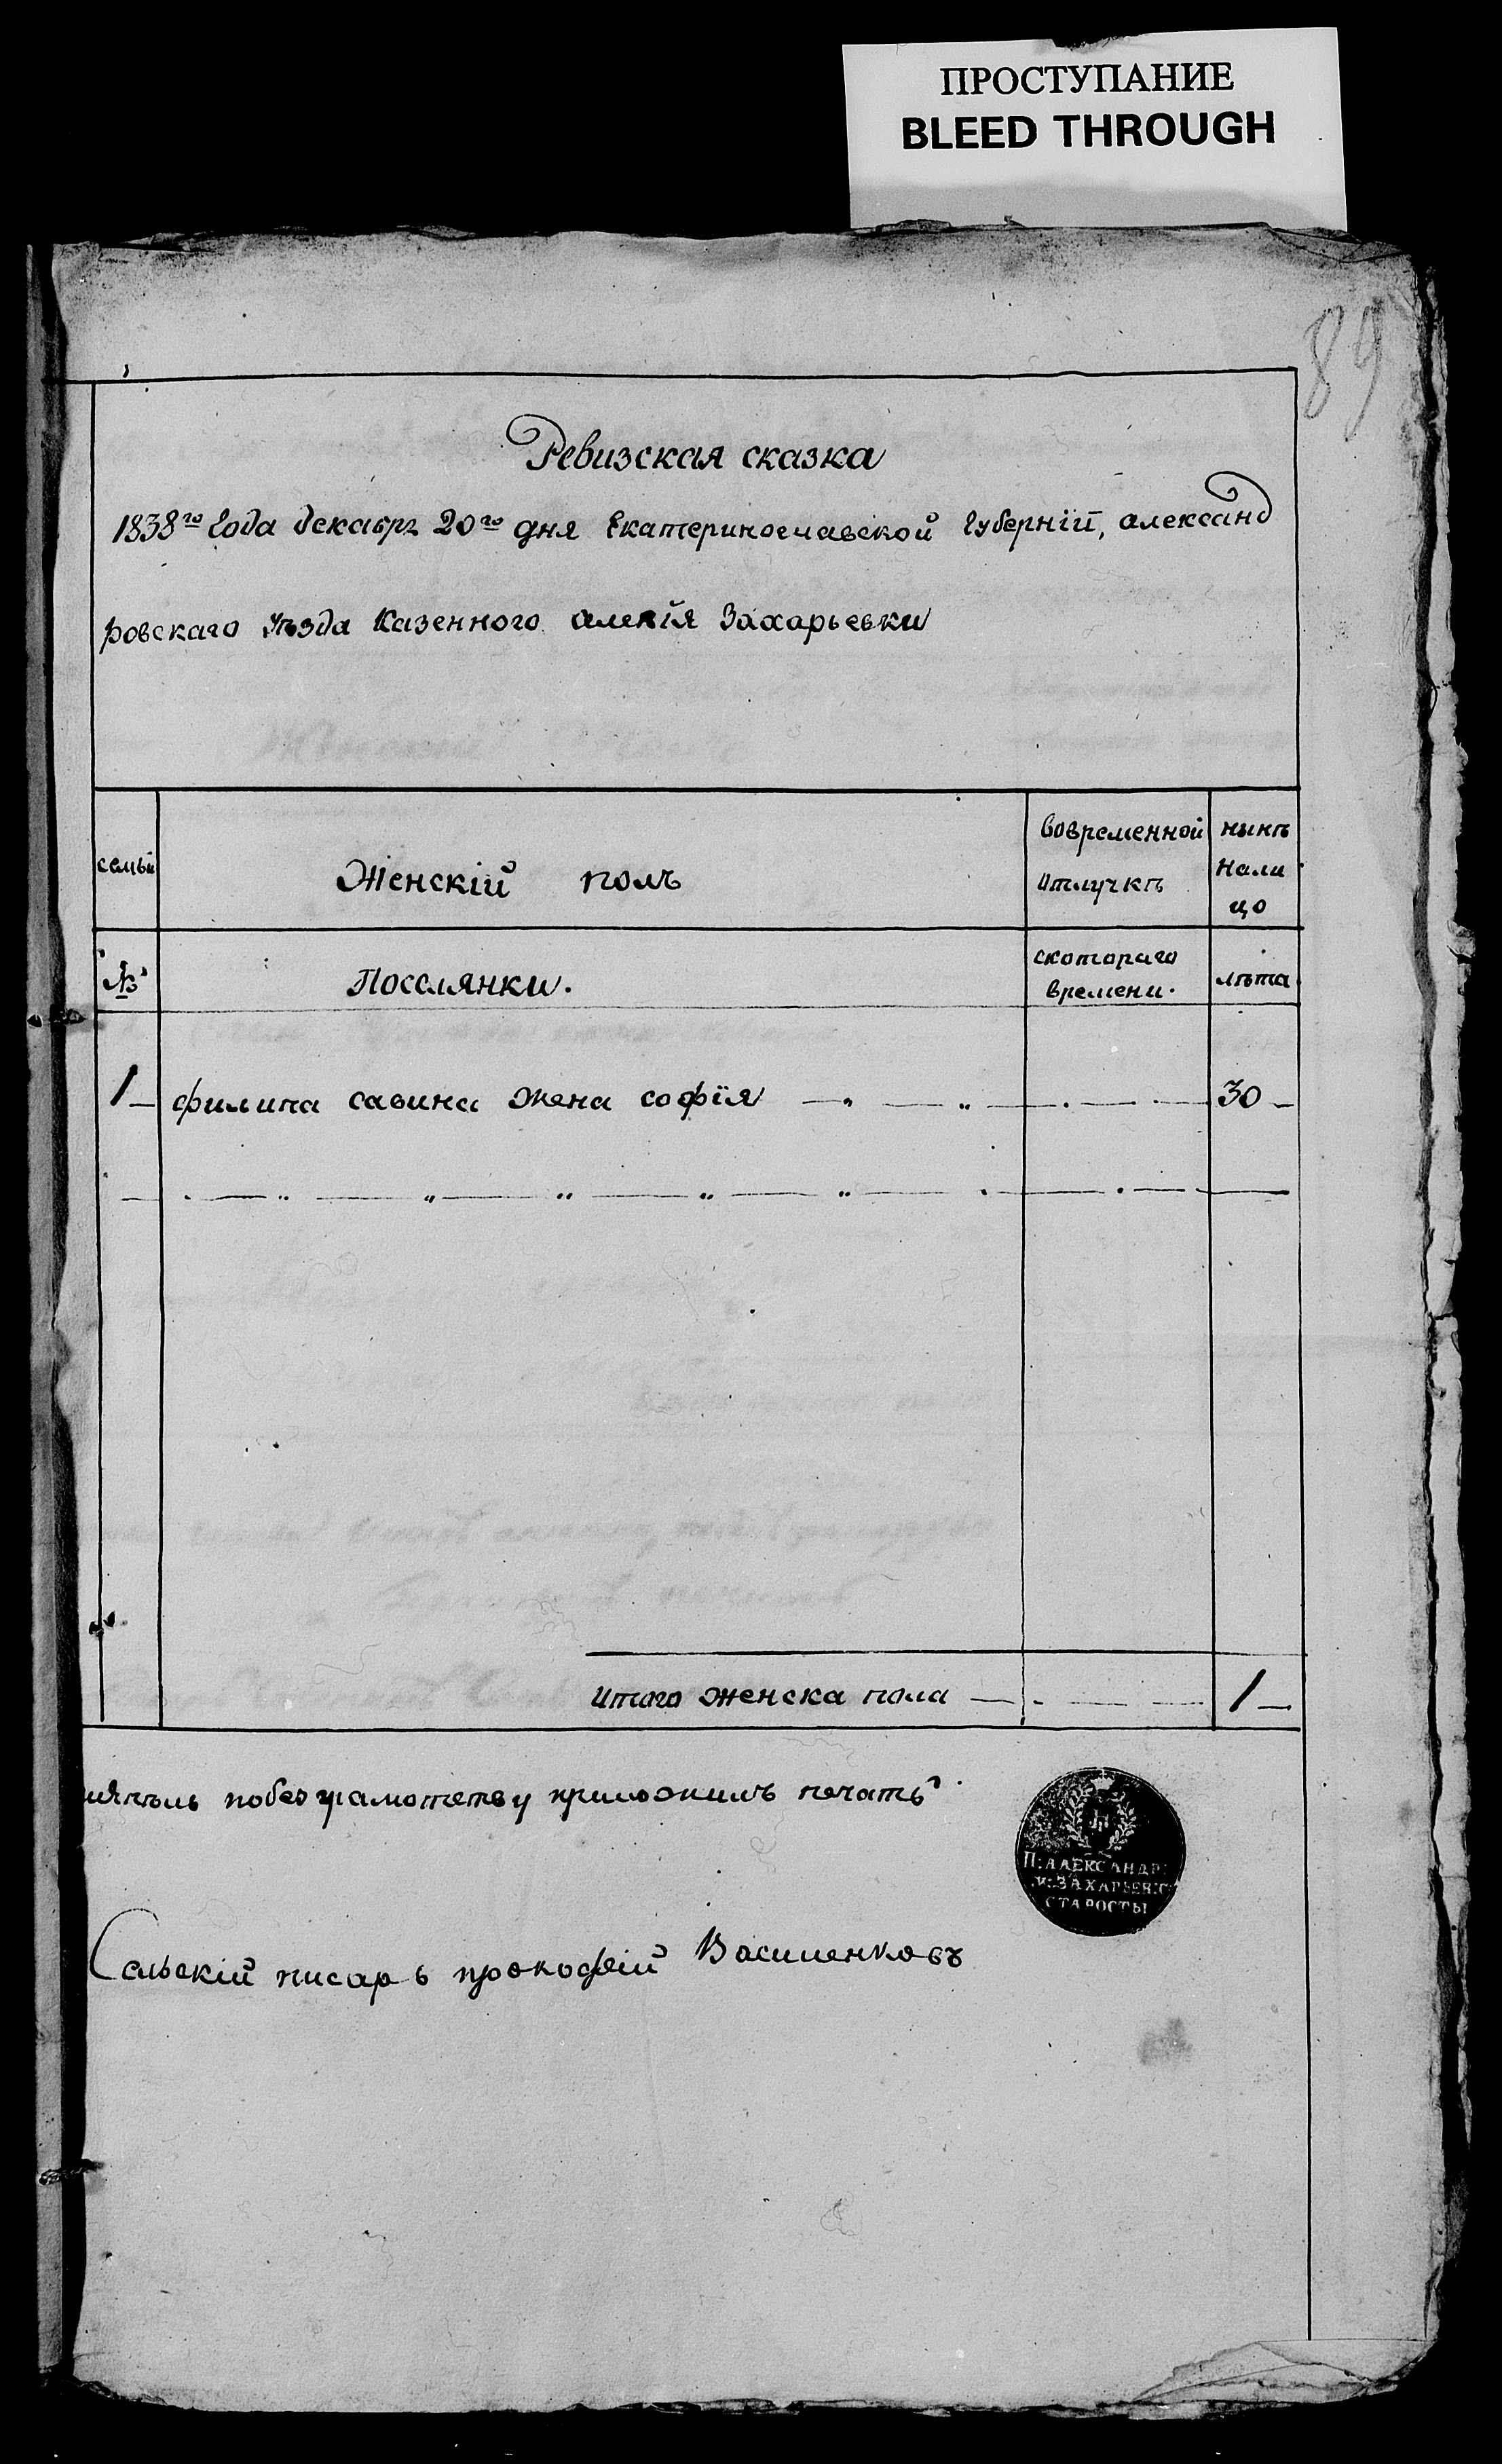 ПРОСТУПАНИЕ
BLEED THROUGH
89
Ревизская сказка
1838го Года декабря 20го дня Екатеринославской Губерніи, александ
ровскаго уѣзда Казенного Захарьевки
семьи
Женскій полъ
вовременной
отлучкѣ
нынѣ
нали
цо
№
Поселянки.
скотораго
времени.
лѣта
1 филипа савина жена софія 30
Итого женска пола 1
иятель побезграмотству приложилъ печать
П:АЛЕКСАНДР:
И:ЗАХАРЬЕВ:С
СТАРОСТЫ
Сельскій писарь прокофій Василенковъ